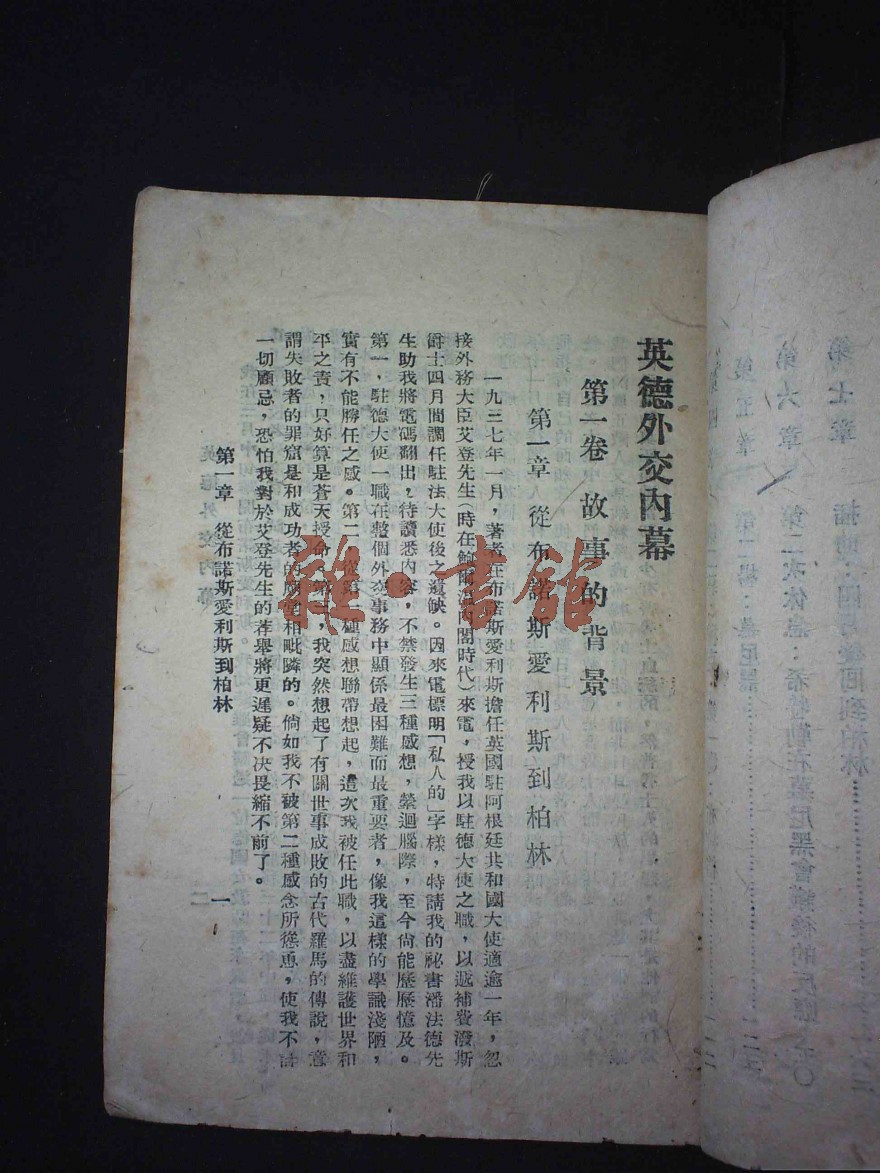 英德外交內幕
第一卷 故事的背景
第一章 從布諾斯愛利斯到柏林
一九三七年一月，著者在布諾斯愛利斯擔任英國駐阿根廷共和國大使適逾一年，忽
接外務大臣艾登先生(時在鮑爾溫內閣時代)來電，授我以駐德大使之職，以遞補費潑斯
爵士四月間調任駐法大使後之遺缺。因來電標明「私人的」字樣，特請我的祕書潘法德先
生助我將電碼翻出，待讀悉內容，不禁發生三種感想，縈迴腦際，至今尚能歷歷憶及。
第一，駐德大使一職在整個外交事務中顯係最困難而最重要者，像我這樣的學識淺陋，
實有不能勝任之感。第二，從第一種感想聯帶想起，這次我被任此職，以盡維護世界和
平之責，只好算是蒼天授命。第三，我突然想起了有關世事成敗的古代羅馬的傳說，意
謂失敗者的罪窟是和成功者的廟堂相毗隣的。倘如我不被第二種感念所慫恿，使我不計
一切顧忌，恐怕我對於艾登先生的荐舉將更遲疑不決畏縮不前了。
第一章 從布諾斯愛利斯到柏林
一
雜·書館